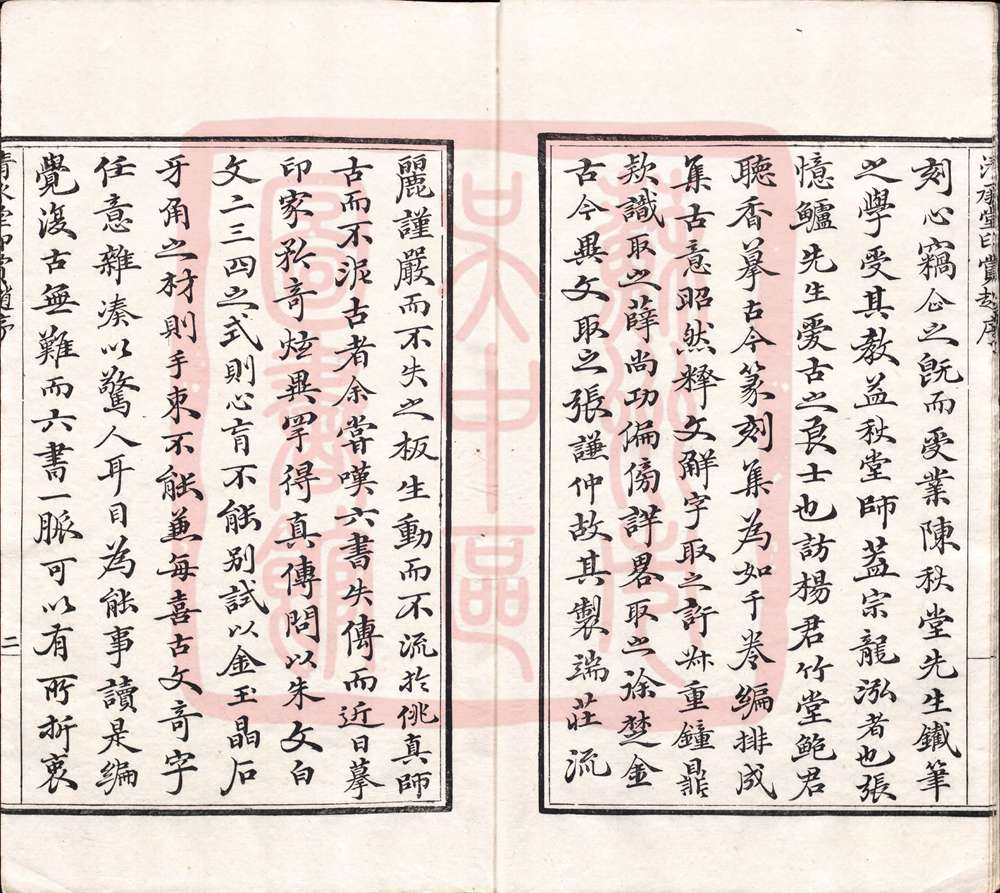 清承堂印賞趙序
刻心竊企之既而受業陳秋堂先生鐵筆
之學受其教益秋堂師蓋宗龍泓者也張
憶鱸先生愛古之良士也訪楊君竹堂鮑君
聽香摹古今篆刻集為如干卷編排成
集古意昭然釋文解字取之許叔重鐘鼎
款識取之薛尚功偏傍詳畧取之徐楚金
古今異文取之張謙仲故其製端莊流
麗謹嚴而不失之板生動而不流於佻真師
古而不泥古者余嘗嘆六書失傳而近日摹
印家矜奇炫異罕得真傳問以朱文白
文二三四之式則心盲不能别試以金玉晶石
牙角之材則手束不能兼每喜古文奇字
任意雜湊以驚人耳目為能事讀是編
覺復古無難而六書一脈可以有所折衷
二
蘇州市
吳中區
圖書館